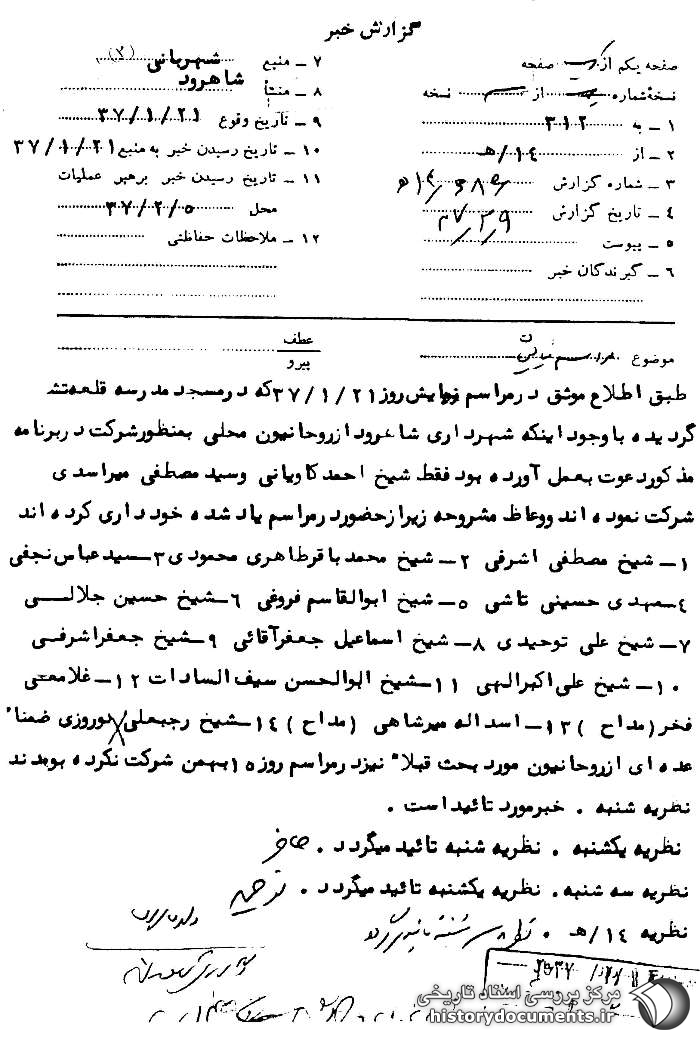 گزارش خبر
صفحه یکم از یک صفحه
نسخهٔ شماره از نسخه
۱ ـ به ۳۱۲
۲ ـ از ۱۴/هـ
۳ ـ شماره گزارش
۴ ـ تاریخ گزارش
۵ ـ پیوست
۶ ـ گیرندگان خبر
۷ ـ منبع شهربانی
۸ ـ منشأ شاهرود
۹ ـ تاریخ وقوع ۳۷/۱/۲۱
۱۰ ـ تاریخ رسیدن خبر به منبع ۳۷/۱/۲۱
۱۱ ـ تاریخ رسیدن خبر برهبر عملیات
محل ۳۷/۲/۵
۱۲ ـ ملاحظات حفاظتی
موضوع
عطف
پیرو
طبق اطلاع موثق درمراسم نیایش روز ۳۷/۱/۲۱ که درمسجد مدرسه قلعه تشـ
گردیده باوجود اینکه شهرداری شاهرود ازروحانیون محلی بمنظورشرکت دربرنامه
مذکوردعوت بعمل آورده بود فقط شیخ احمد کاویانی وسید مصطفی میراسدی
شرکت نموده اند ووعاظ مشروحه زیرازحضوردرمراسم یاد شده خودداری کرده اند
۱ـ شیخ مصطفی اشرفی ۲ـ شیخ محمد باقرطاهری محمودی ۳ـ سید عباس نجفی
۴ـ مهدی حسینی تاشی ۵ـ شیخ ابوالقاسم فروغی ۶ـ شیخ حسین جلالـــی
۷ـ شیخ علی توحیدی ۸ـ شیخ اسماعیل جعفرآقائی ۹ـ شیخ جعفراشرفـی
۱۰ـ شیخ علی اکبرالهی ۱۱ـ شیخ ابوالحسن سیف السادات ۱۲ـ غلامعـی
فخر(مداح) ۱۳ـ اسداله میرشاهی (مداح) ۱۴ـ شیخ رجبعلی نوروزی ضمنا"
عده ای ازروحانیون مورد بحث قبلا" نیزدرمراسم روز ۱۵بهمن شرکت نکرده بودند
نظریه شنبه . خبرمورد تائیداست .
نظریه یکشنبه . نظریه شنبه تائید میگردد .
نظریه سه شنبه . نظریه یکشنبه تائید میگردد .
نظریه ۱۴/هـ .
مرکز بررسی اسناد تاریخی
historydocuments.ir